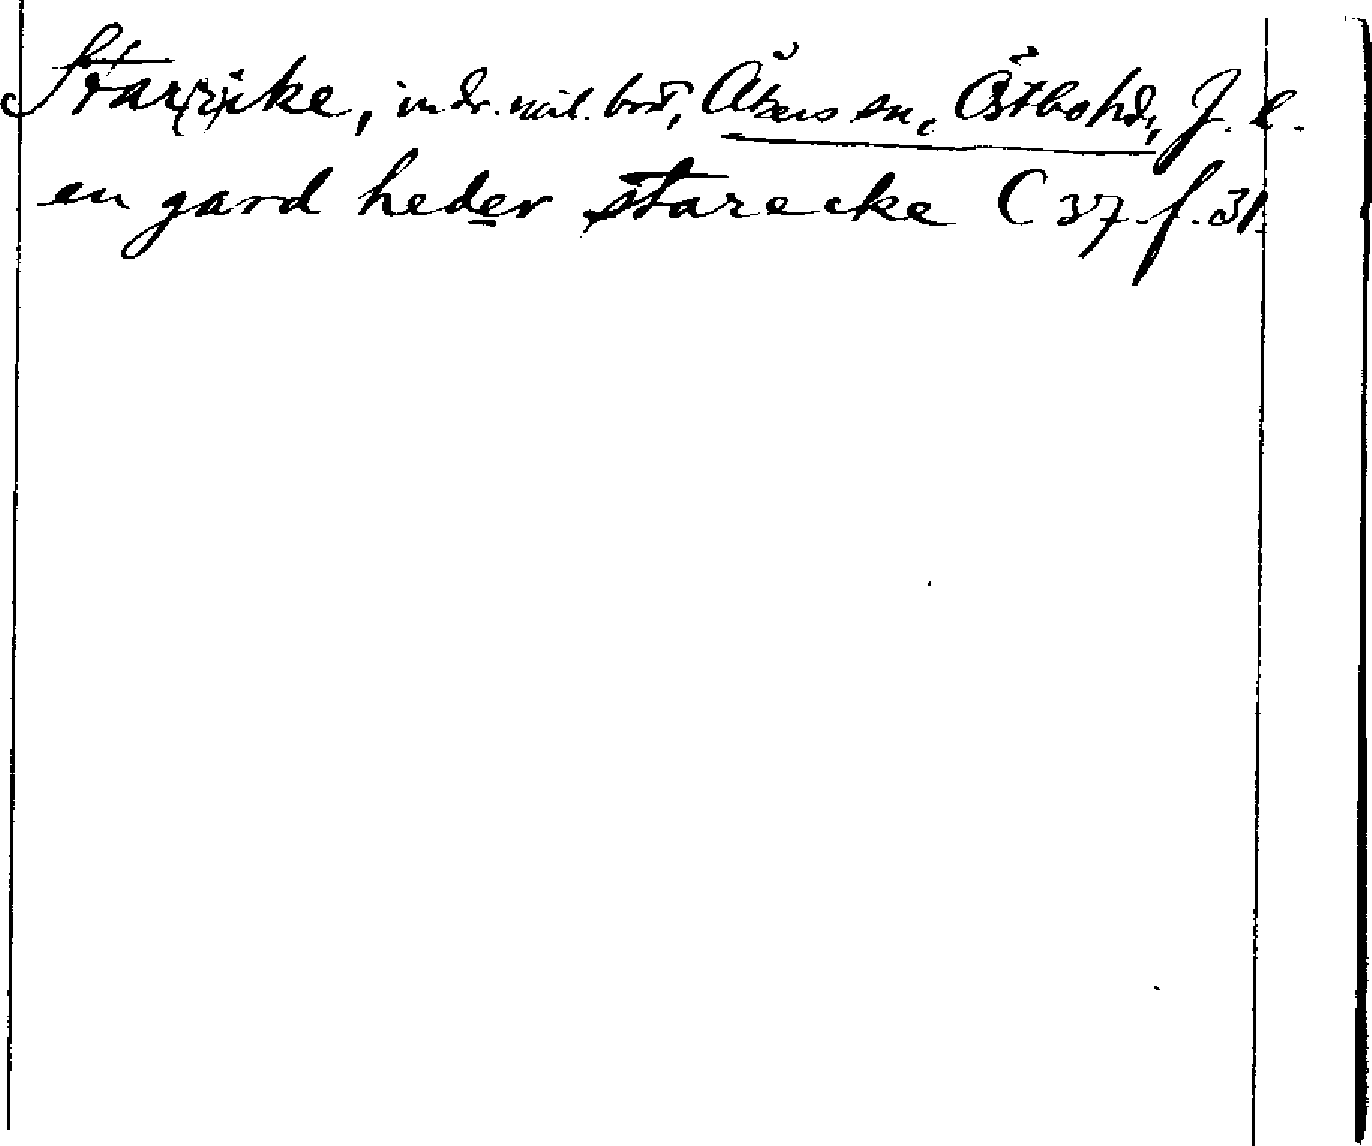 Star(r)ike, indr. mil. bost, Åkers sn, Östbohd, J. l.
en gard heder starecke C 37 f. 31